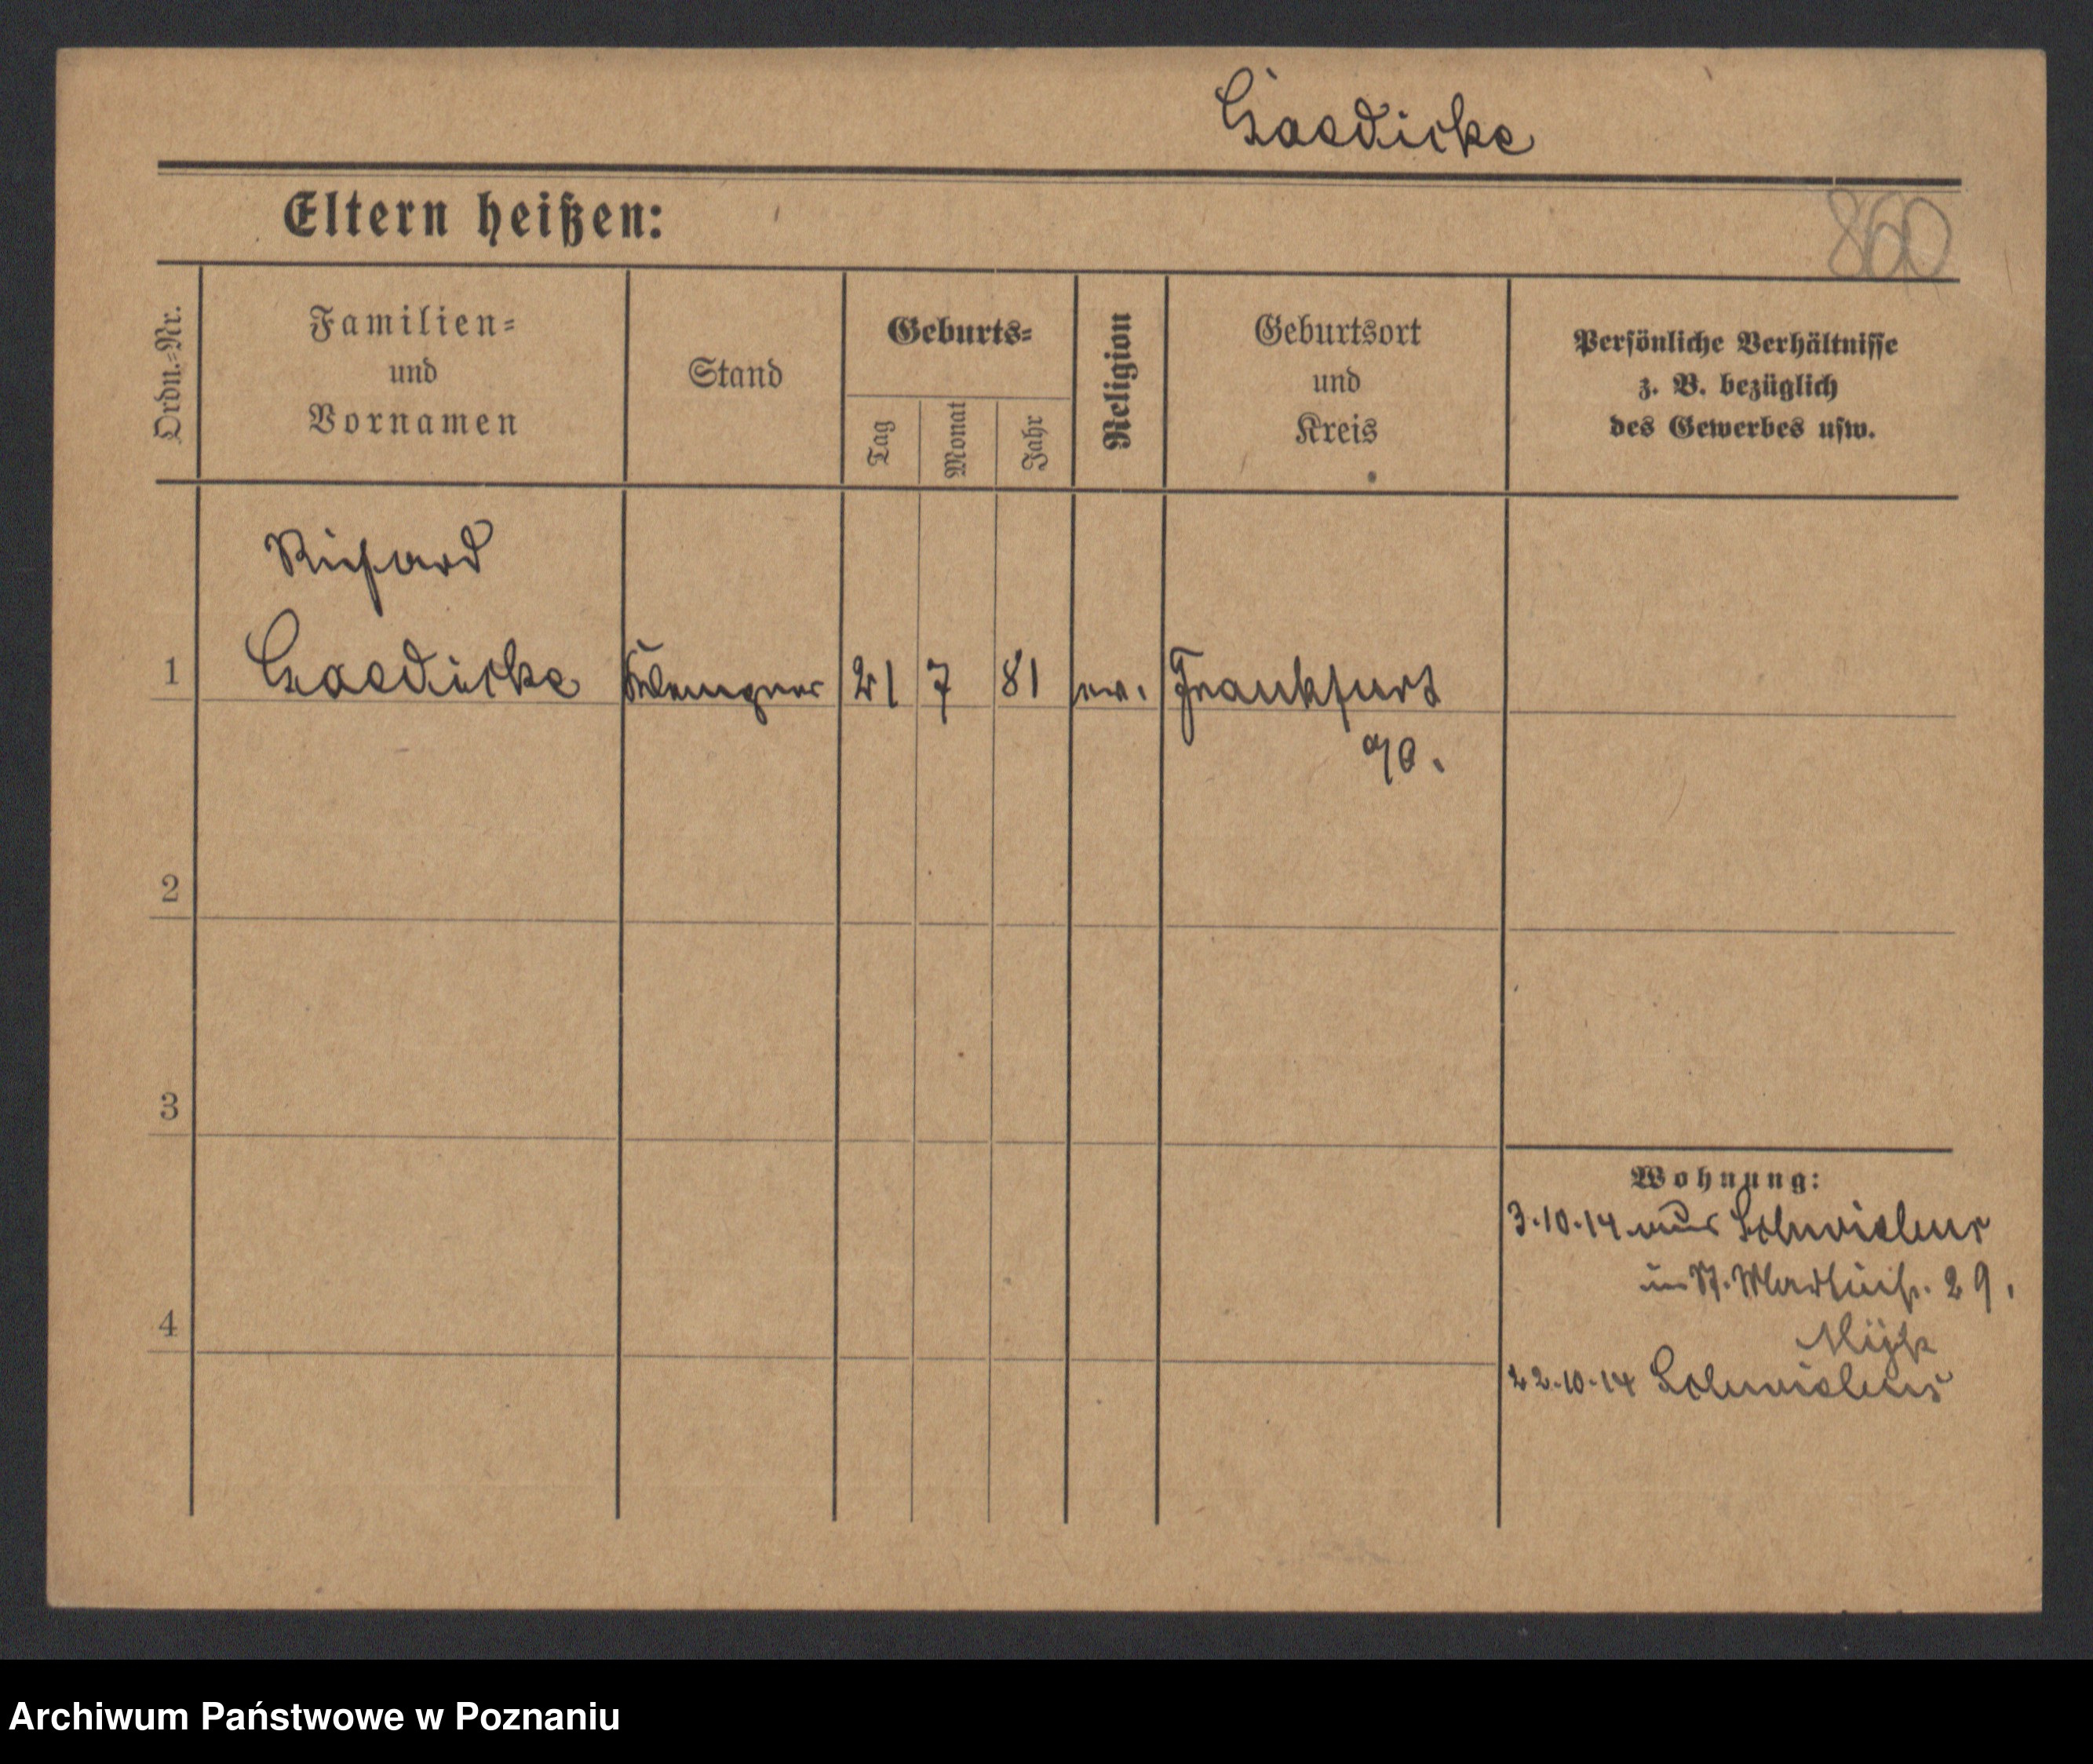 Gaedicke
Eltern heißen:
860
Ordn.-Nr.
Familien-
und
Vornamen
Stand
Geburts-
Tag
Monat
Jahr
Religion
Geburtsort
und
Kreis
Persönliche Verhältnisse
z. B. bezüglich
des Gewerbes usw.
Richard
1 Gaedicke Klempner 21 7 81 ev. Frankfurt
a/O.
2
3
4
Wohnung:
3.10.14 aus
in St. Martinstr. 29.
22.10.14
Archiwum Państwowe w Poznaniu